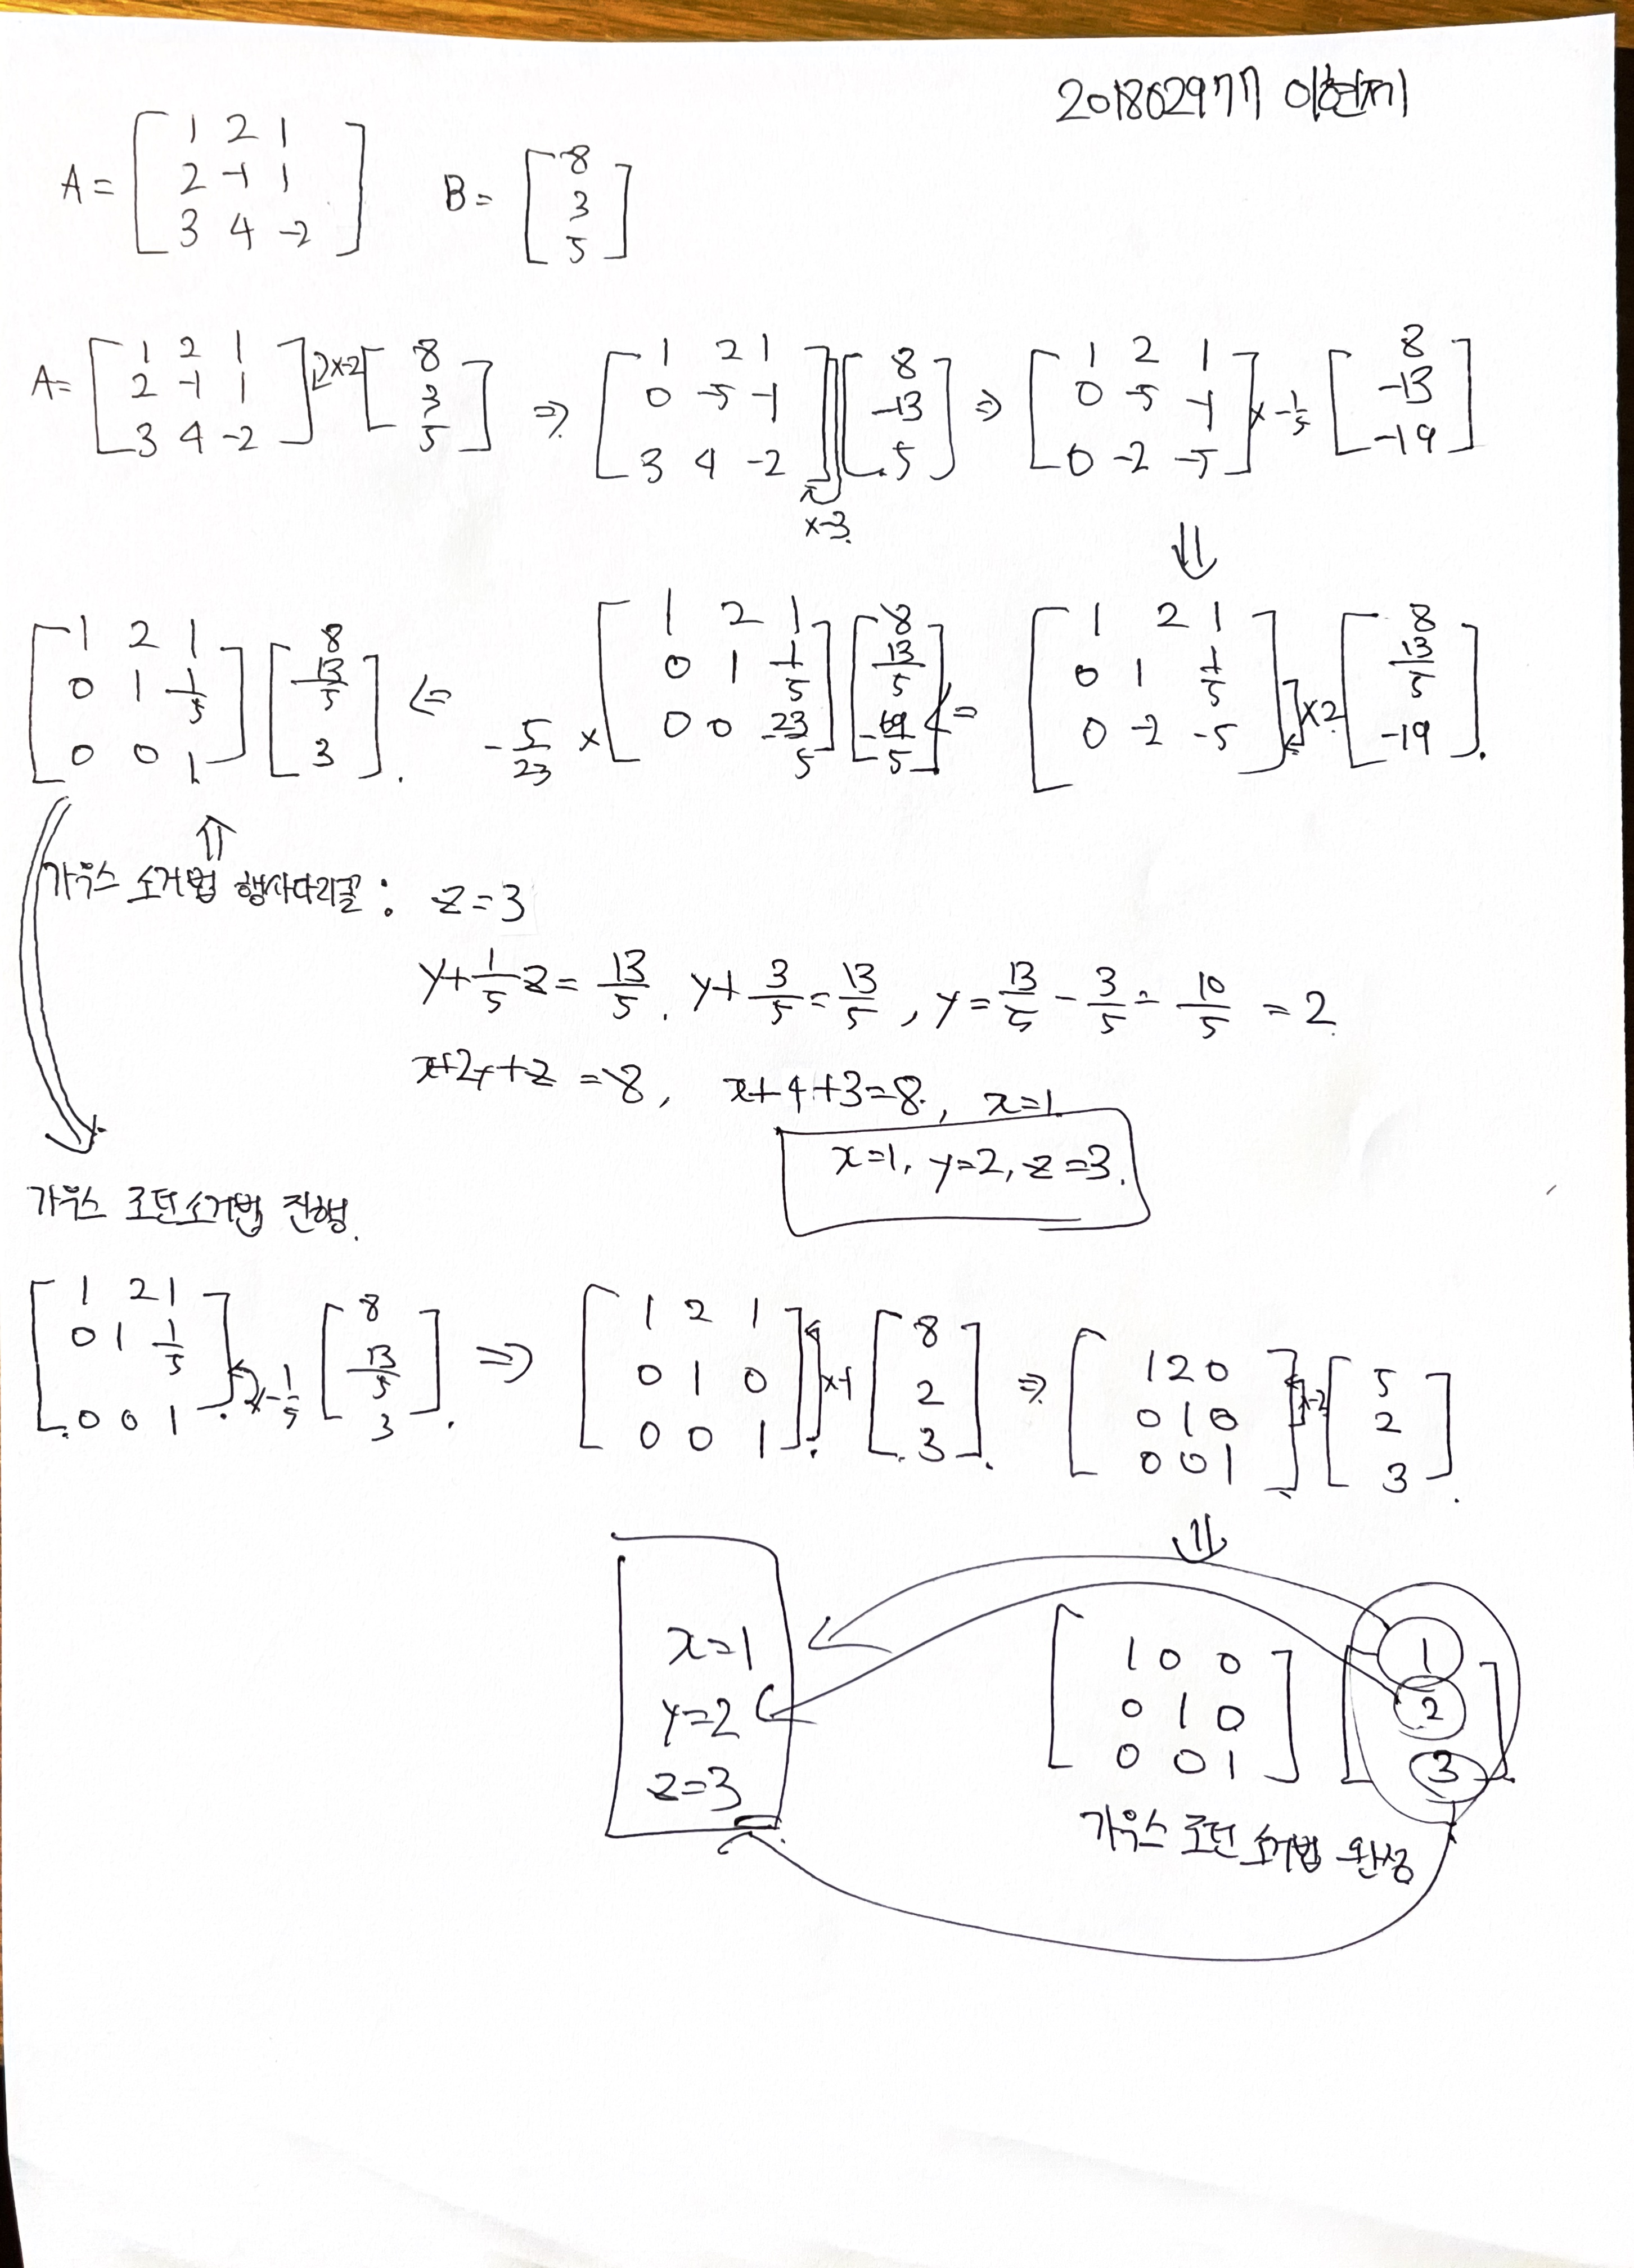 201802977 이현지
A = [ 1 2 1 ; 2 -1 1 ; 3 4 -2 ] B = [ 8 ; 3 ; 5 ]
A = [ 1 2 1 ; 2 -1 1 ; 3 4 -2 ] ×-2 [ 8 ; 3 ; 5 ] ⇒ [ 1 2 1 ; 0 -5 -1 ; 3 4 -2 ] [ 8 ; -13 ; 5 ] ⇒ [ 1 2 1 ; 0 -5 -1 ; 0 -2 -5 ] × -1/5 [ 8 ; -13 ; -19 ]
×-3.
⇓
[ 1 2 1 ; 0 1 1/5 ; 0 0 1 ] [ 8 ; 13/5 ; 3 ]. ⇐ -5/23 × [ 1 2 1 ; 0 1 1/5 ; 0 0 -23/5 ] [ 8 ; 13/5 ; -69/5 ] ⇐ [ 1 2 1 ; 0 1 1/5 ; 0 -2 -5 ] ×2 [ 8 ; 13/5 ; -19 ].
⇑
가우스 소거법 행사다리꼴 : z=3
y+1/5z = 13/5. y+3/5=13/5, y=13/5-3/5=10/5=2
x+2y+z=8, x+4+3=8, x=1.
x=1, y=2, z=3.
가우스 조던소거법 진행.
[ 1 2 1 ; 0 1 1/5 ; 0 0 1 ] ×-1/5 [ 8 ; 13/5 ; 3 ]. ⇒ [ 1 2 1 ; 0 1 0 ; 0 0 1 ] ×-1 [ 8 ; 2 ; 3 ]. ⇒ [ 1 2 0 ; 0 1 0 ; 0 0 1 ] ×-2 [ 5 ; 2 ; 3 ].
⇓
x=1
y=2
z=3
[ 1 0 0 ; 0 1 0 ; 0 0 1 ] [ 1 ; 2 ; 3 ]
가우스 조던 소거법 완성